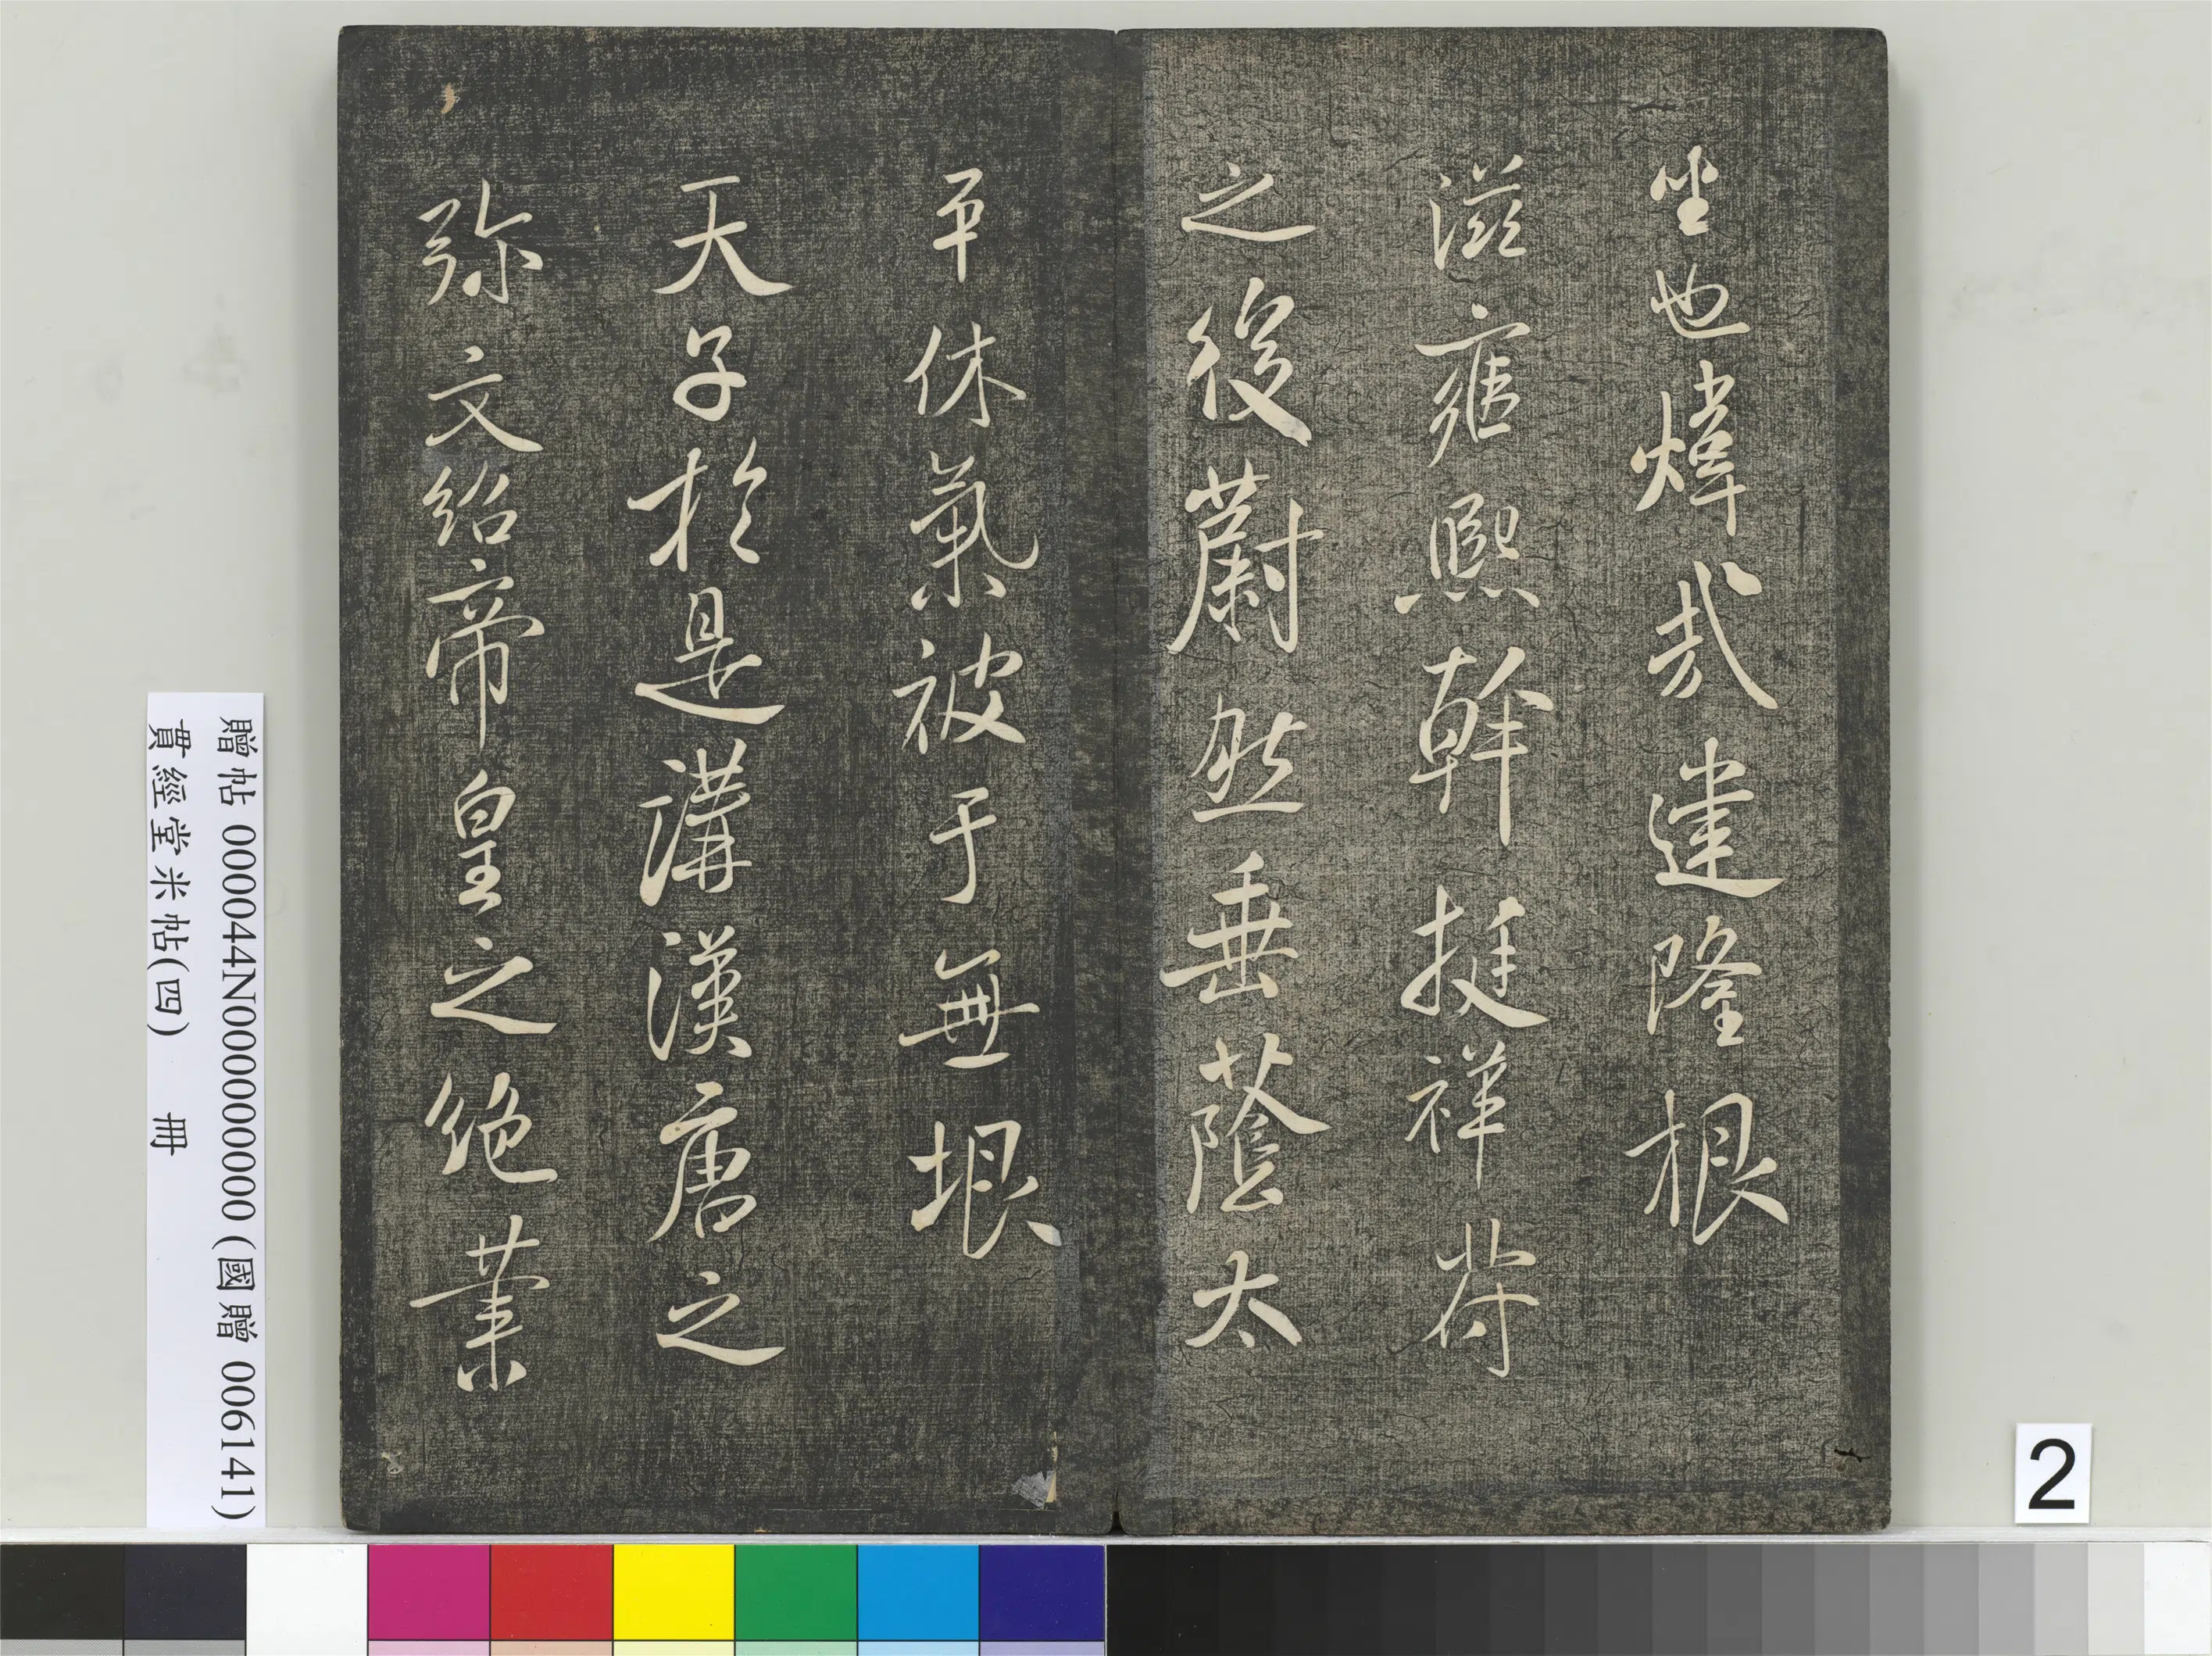 坐也煒哉建隆根
滋雍熙幹挺祥符
之後蔚然垂蔭太
平休氣被于無垠
天子於是溝漢唐之
弥文紹帝皇之絶業
贈帖 000044N000000000 (國贈 006141)
貫經堂米帖(四) 冊
2